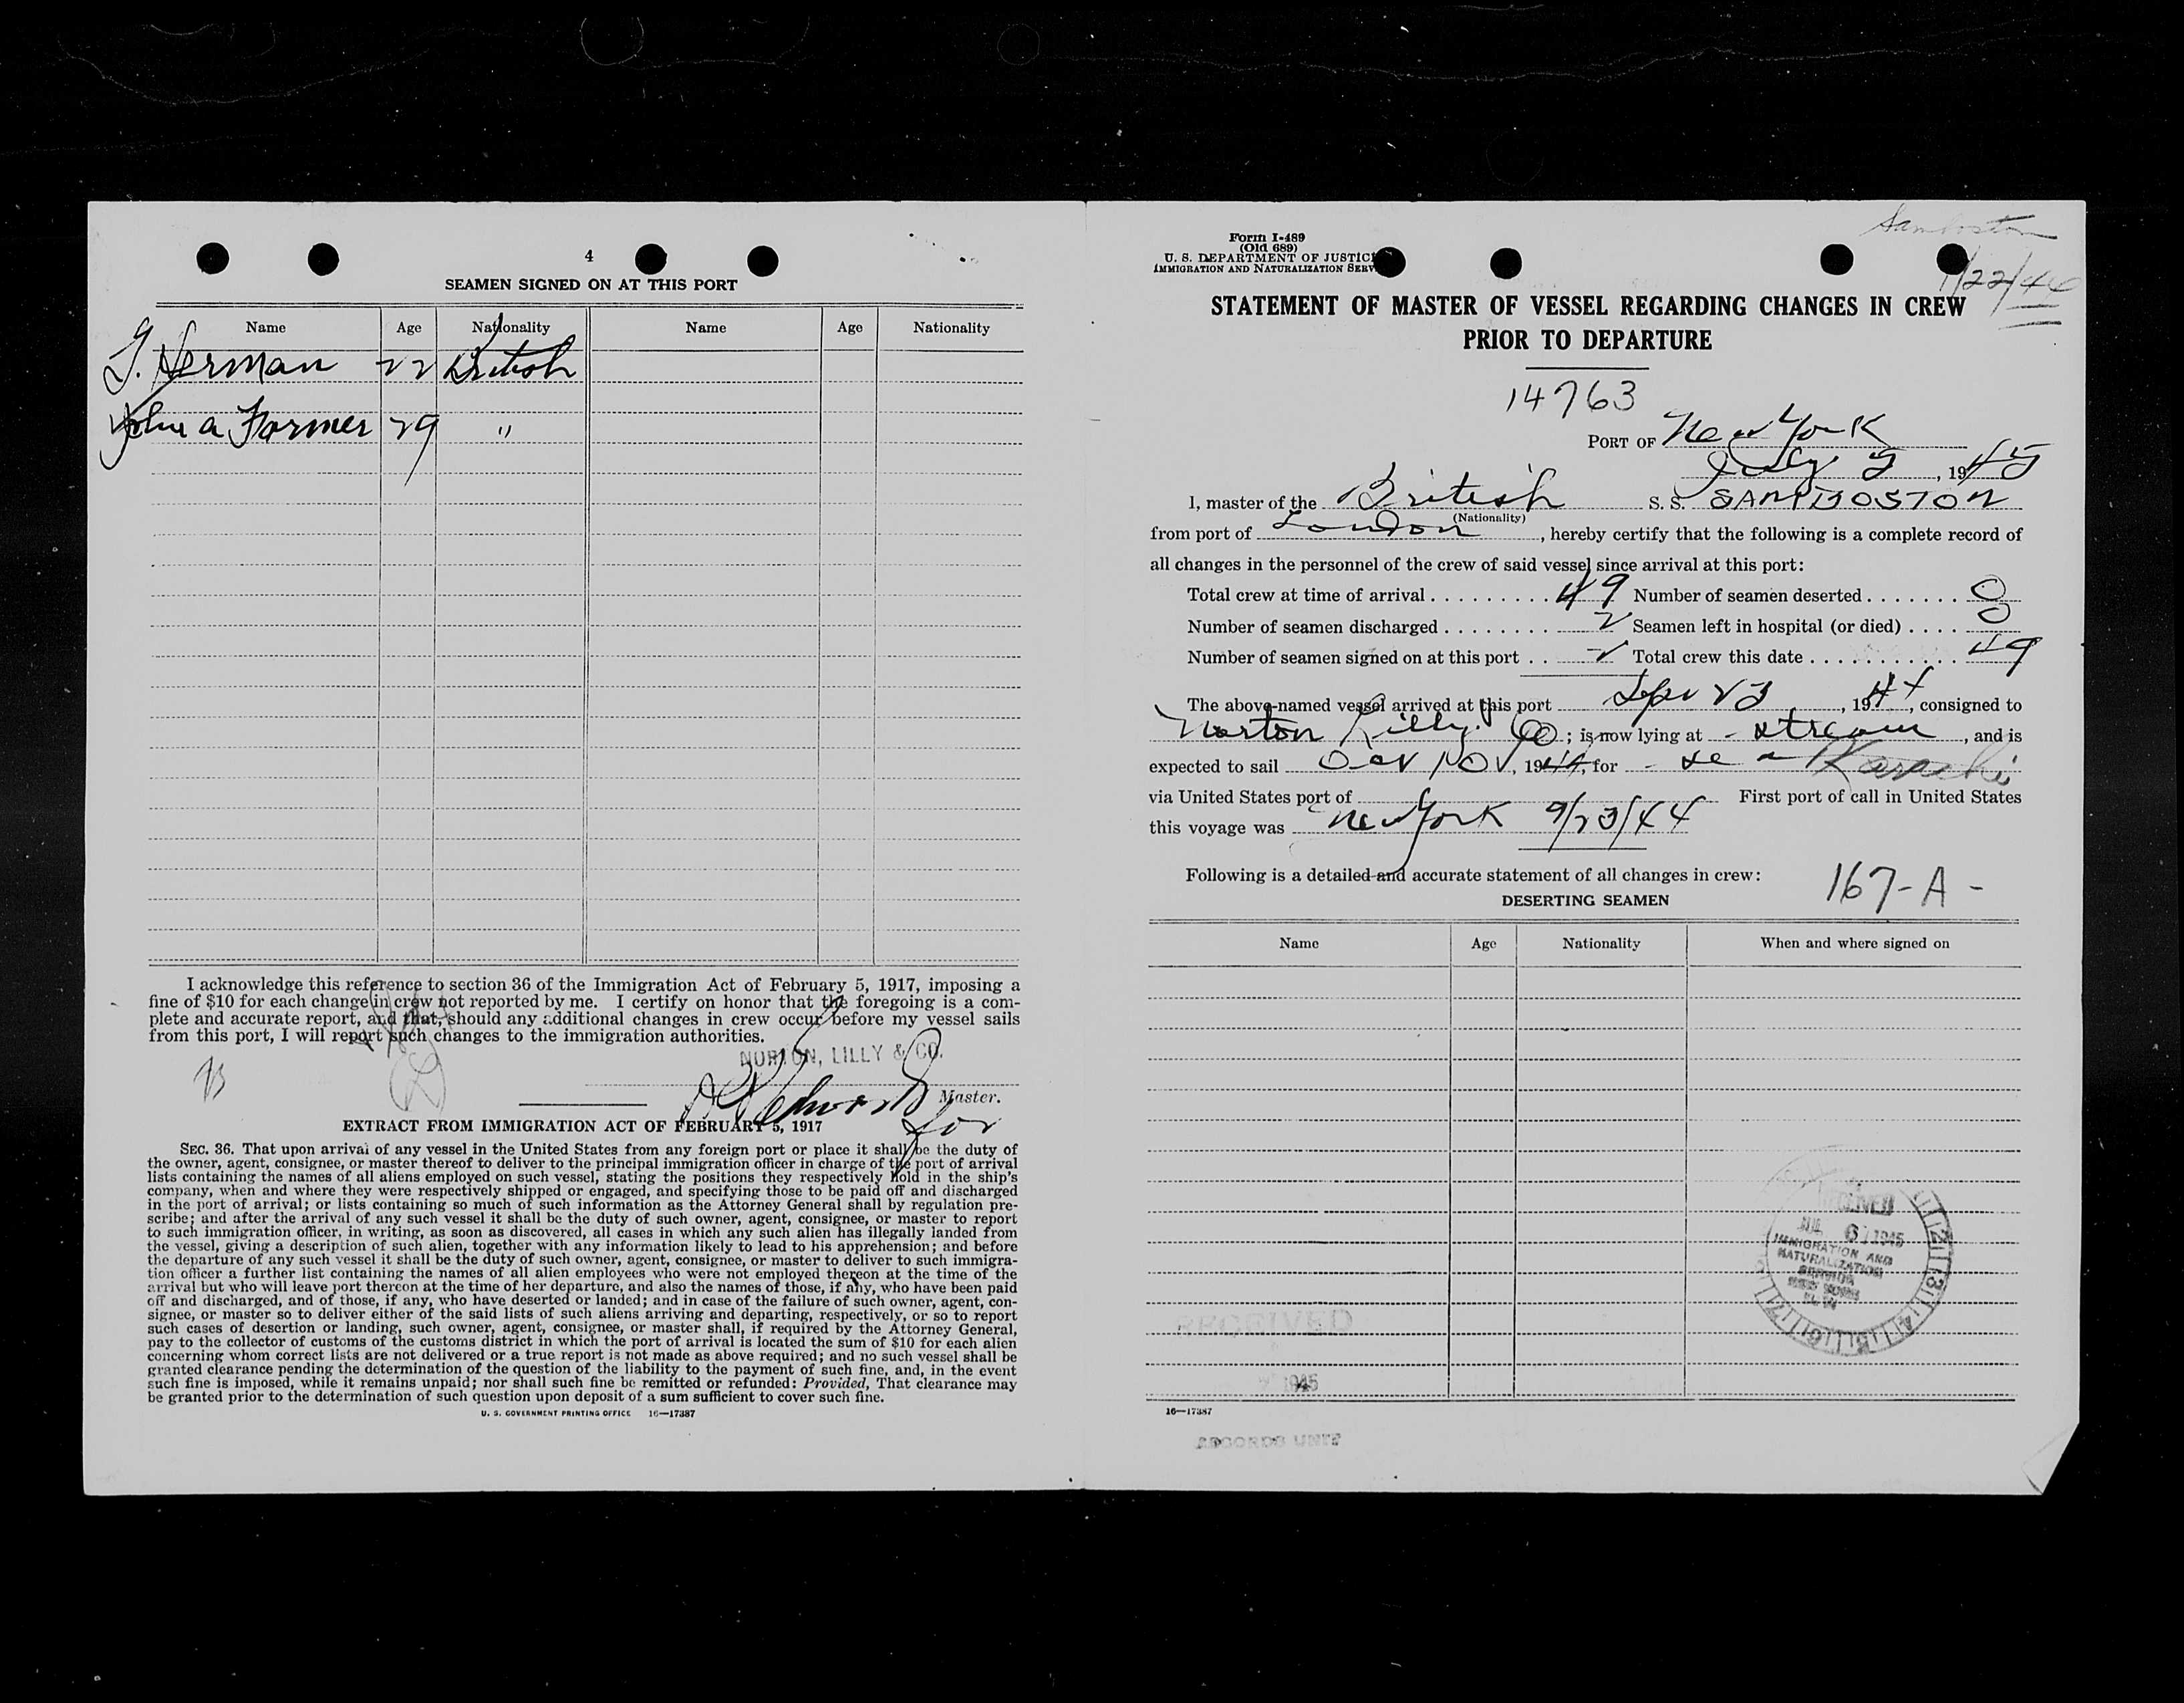 4
SEAMEN SIGNED ON AT THIS PORT
Name Age Nationality Name Age Nationality
Herman 22 British
John a Farmer 29 "
I acknowledge this reference to section 36 of the Immigration Act of February 5, 1917, imposing a
fine of $10 for each change in crew not reported by me. I certify on honor that the foregoing is a com-
plete and accurate report, and that, should any additional changes in crew occur before my vessel sails
from this port, I will report such changes to the immigration authorities.
NORTON, LILLY & CO.
Edwards Master.
for
EXTRACT FROM IMMIGRATION ACT OF FEBRUARY 5, 1917
SEC. 36. That upon arrival of any vessel in the United States from any foreign port or place it shall be the duty of
the owner, agent, consignee, or master thereof to deliver to the principal immigration officer in charge of the port of arrival
lists containing the names of all aliens employed on such vessel, stating the positions they respectively hold in the ship's
company, when and where they were respectively shipped or engaged, and specifying those to be paid off and discharged
in the port of arrival; or lists containing so much of such information as the Attorney General shall by regulation pre-
scribe; and after the arrival of any such vessel it shall be the duty of such owner, agent, consignee, or master to report
to such immigration officer, in writing, as soon as discovered, all cases in which any such alien has illegally landed from
the vessel, giving a description of such alien, together with any information likely to lead to his apprehension; and before
the departure of any such vessel it shall be the duty of such owner, agent, consignee, or master to deliver to such immigra-
tion officer a further list containing the names of all alien employees who were not employed thereon at the time of the
arrival but who will leave port thereon at the time of her departure, and also the names of those, if any, who have been paid
off and discharged, and of those, if any, who have deserted or landed; and in case of the failure of such owner, agent, con-
signee, or master so to deliver either of the said lists of such aliens arriving and departing, respectively, or so to report
such cases of desertion or landing, such owner, agent, consignee, or master shall, if required by the Attorney General,
pay to the collector of customs of the customs district in which the port of arrival is located the sum of $10 for each alien
concerning whom correct lists are not delivered or a true report is not made as above required; and no such vessel shall be
granted clearance pending the determination of the question of the liability to the payment of such fine, and, in the event
such fine is imposed, while it remains unpaid; nor shall such fine be remitted or refunded: Provided, That clearance may
be granted prior to the determination of such question upon deposit of a sum sufficient to cover such fine.
U. S. GOVERNMENT PRINTING OFFICE 16—17387
Samboston
Form I-489
(Old 689)
U. S. DEPARTMENT OF JUSTICE
IMMIGRATION AND NATURALIZATION SERV
STATEMENT OF MASTER OF VESSEL REGARDING CHANGES IN CREW
PRIOR TO DEPARTURE
14763
PORT OF New York
July 5, 1945
I, master of the British S. S. SAMBOSTON
(Nationality)
from port of London, hereby certify that the following is a complete record of
all changes in the personnel of the crew of said vessel since arrival at this port:
Total crew at time of arrival 49 Number of seamen deserted 0
Number of seamen discharged 2 Seamen left in hospital (or died) 0
Number of seamen signed on at this port 2 Total crew this date 49
The above-named vessel arrived at this port Sep 23, 1944, consigned to
Norton Lilly Co; is now lying at - stream, and is
expected to sail , 1944, for Karachi
via United States port of First port of call in United States
this voyage was New York 9/23/44
Following is a detailed and accurate statement of all changes in crew:
167-A-
DESERTING SEAMEN
Name Age Nationality When and where signed on
RECEIVED
JUL 6 1945
IMMIGRATION AND
NATURALIZATION
SERVICE
RECEIVED
1945
16—17387
RECORDS UNIT